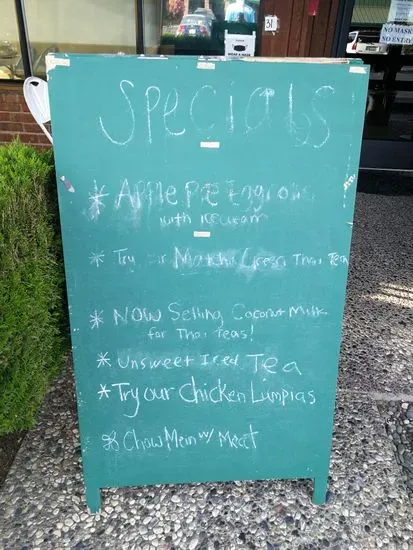 31
WEAR A MASK
NO MASK
NO ENTRY
SPECIALS
* Apple Pie Eggrolls
with icecream
* Try our Matcha Green Thai Tea
* NOW Selling Coconut Milk
for Thai Teas!
* Unsweet Iced Tea
* Try our Chicken Lumpias
* Chow Mein w/ Meat